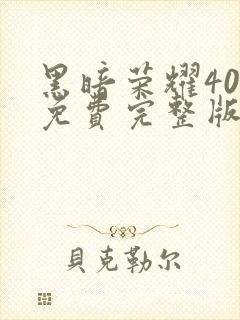 黑暗荣耀40
免費完整版
貝克勒尔